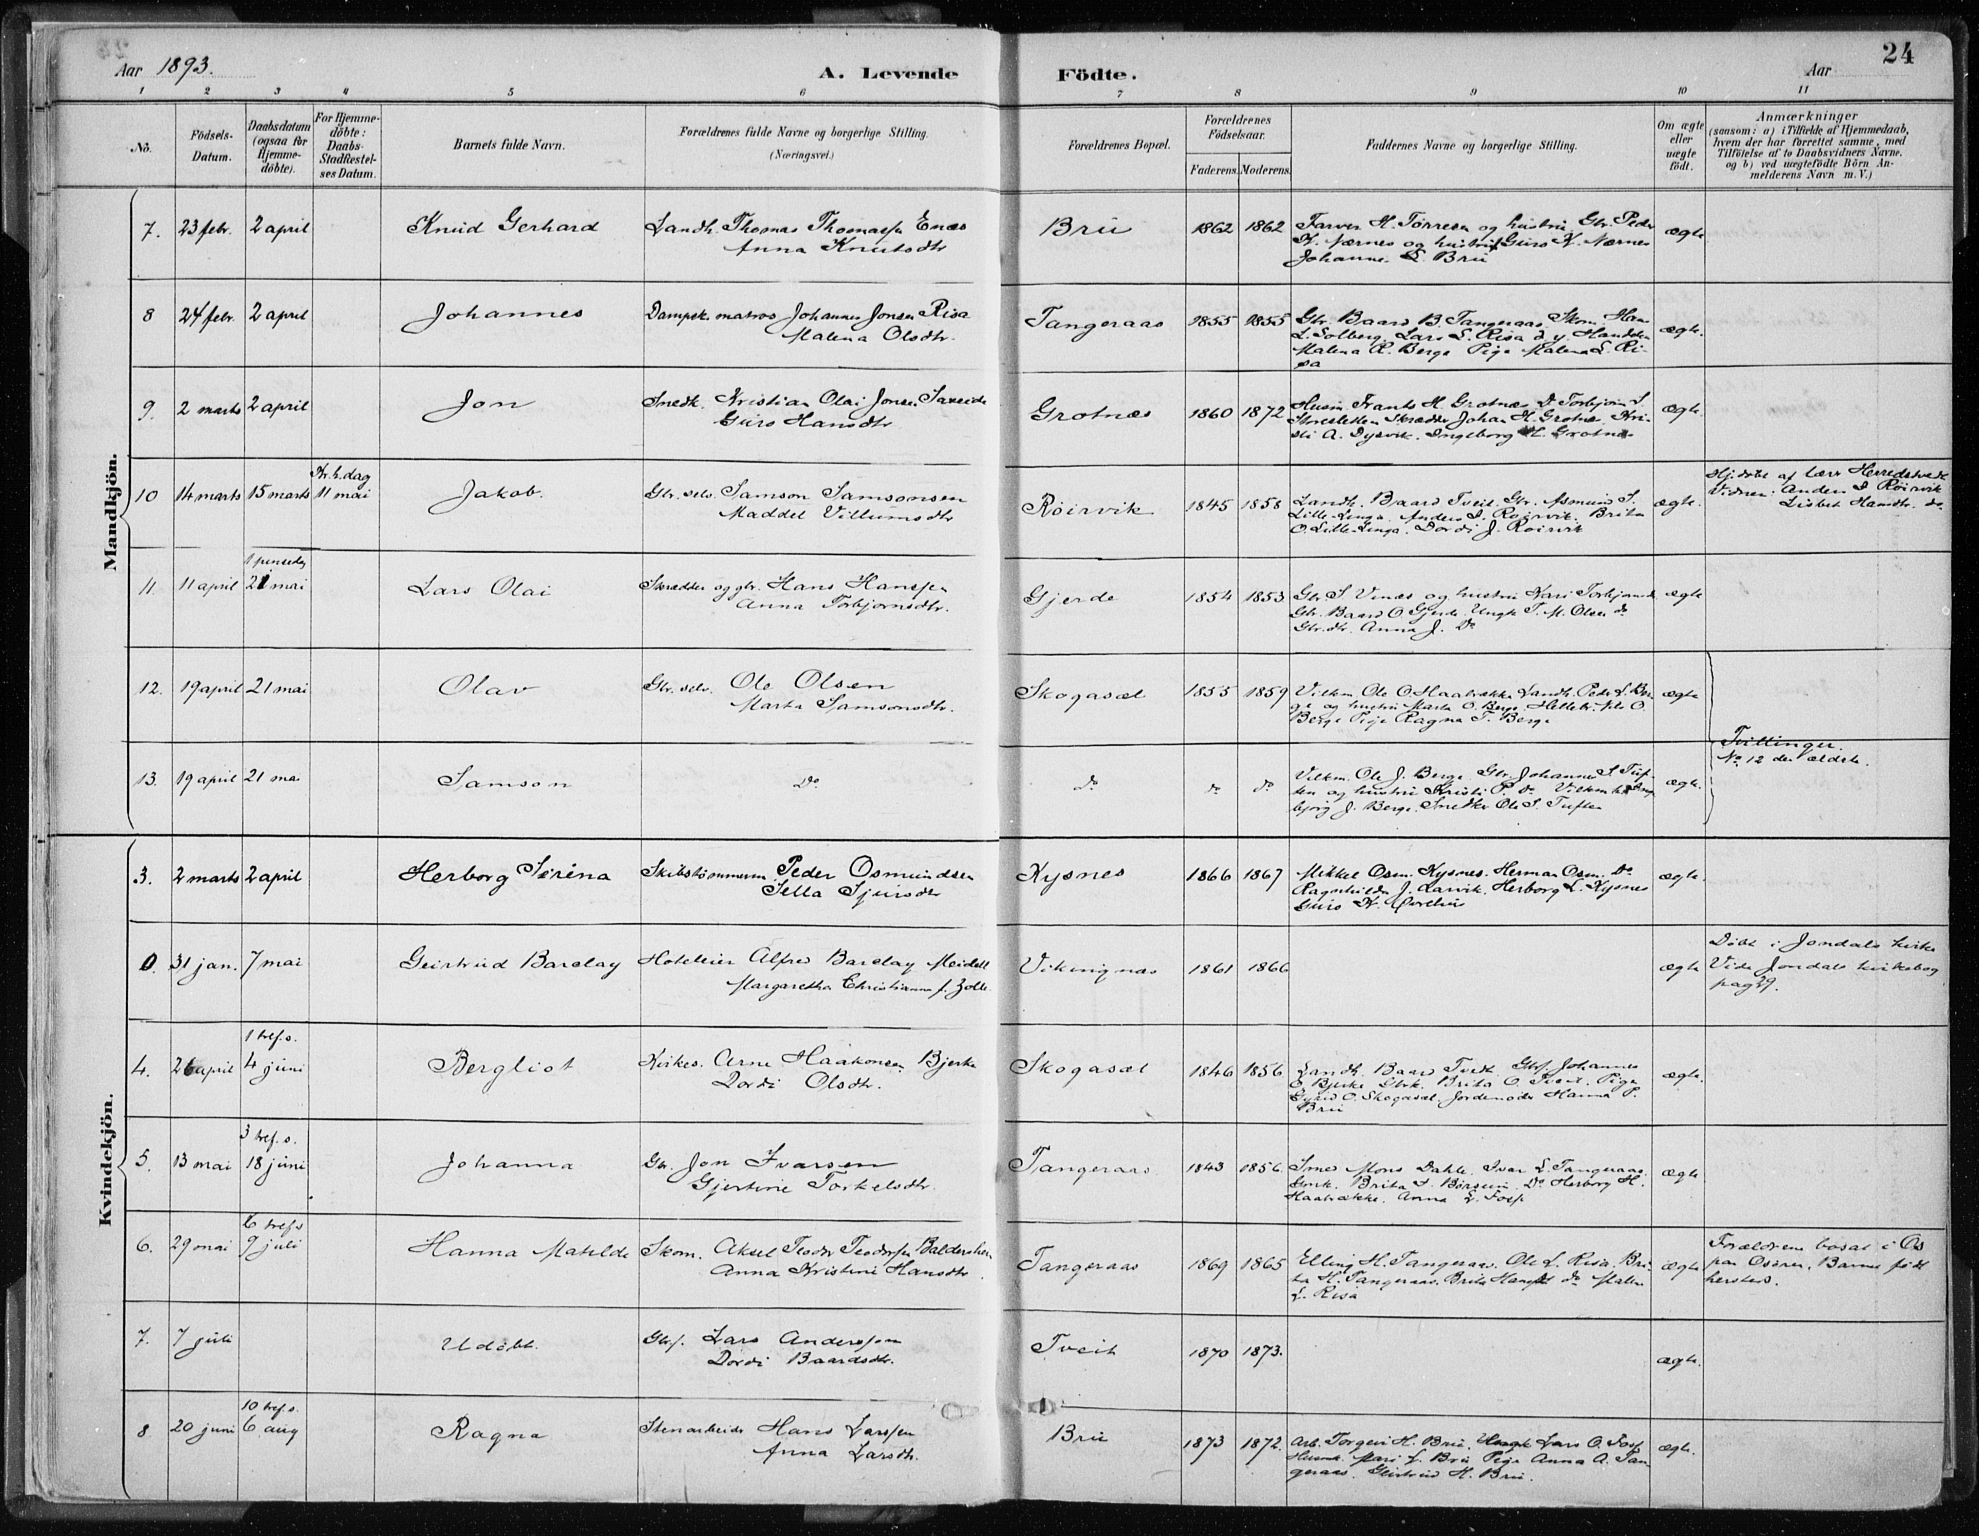 24
Aar 1893.
A. Levende Födte.
Aar
1 2 3 4 5 6 7 8 9 10 11
No.
Födsels-
Datum.
Daabsdatum
(ogsaa for
Hjemme-
döbte).
For Hjemme-
döbte:
Daabs-
Stadfæstel-
ses Datum.
Barnets fulde Navn.
Forældrenes fulde Navne og borgerlige Stilling.
(Næringsvei.)
Forældrenes Bopæl.
Forældrenes
Födselsaar.
Faderens. Moderens.
Faddernes Navne og borgerlige Stilling.
Om ægte
eller
uægte
födt.
Anmærkninger
(saasom: a) i Tilfælde af Hjemmedaab,
hvem der har forrettet samme, med
Tilföielse af to Daabsvidners Navne.
og b) ved uægtefödte Börn An-
melderens Navn m. V.)
Mandkjön.
7. 23 febr. 2 april Knud Gerhard Landh. Thomas Thomasen Enæs
Anna Knutsdtr
Brü 1862 1862 Farver H. Tørresen og hustru, Gbr. Peder
K. Nærnes og hustru Guro K. Nærnes
Johanne L. Brü
ægte
8 24 febr. 2 april Johannes Dampsk. matros Johannes Jonsen Risa
Malena Olsdtr.
Tangeraas 1855 1855 Gbr. Baard B. Tangeraas, Skom. Han
L. Solberg, Lars L. Risa
Malena K. Berge Pige Malena L. Ri-
sa
ægte.
9. 2 marts 2 april Jon Snedk. Kristian Olai Jonsen
Guro Hansdtr
Grotnæs 1860 1872 Husm. Frants H. Grotnæs Do Torbjörn S.
Skrædder Johan H. Grotnæs Kri-
sti A. Dysvik. Ingeborg H. Grotnæs
ægte.
10 14 marts 15 marts Kr. h. dag
11 mai Jakob. Gbr. selv. Samson Samsonsen
Maddel Villumsdtr
Röirvik 1845 1858 Landh. Baard Tveit Gbr. Asmund S.
Lille-Linga. Anders S. Röirvik. Brita
O. Lille-Linga. Dordi J. Röirvik
ægte.
Hj. döbt af lærer Herredstvedt
Vidner: Anders S. Röirvik
Lisbet Hansdtr. do.
11. 11 april 1 pinsedag
21 mai Lars Olai Skrædder og gbr. Hans Hansen
Anna Torbjornsdtr.
Gjerde 1854 1853 Gbr S. Vinæs og hustru Kari Torbjornsd
Gbr. Baard O Gjerde Ungk T. M. Olsen do
Gbr.dtr. Anna J. Do
ægte
12. 19 april 21 mai Olav Gbr. selv. Ole Olsen
Marta Samsonsdtr.
Skogasæl 1855 1859 Vilkm Ole O Haatrække Landh. Peder L. Ber-
ge og hustru Marta O. Berge. Nils O.
Berge Pige Ragna T. Berge
ægte
13. 19 april 21 mai Samson Do.
do do do Vilkm. Ole J. Berge. Gbr. Johannes S. Tuf-
ten og hustru Kristi P. Do. Vilkm. Ing-
björg J. Berge. Snedker Ole S. Tuften
ægte.
Tvillinger.
No. 12 den ældste.
Kvindekjön.
3. 2 marts 2 april Herborg Sörina Skibstömmerm. Peder Osmundsen
Sella Sjursdtr
Kysnes 1866 1867 Mikkel Osm. Kysnes. Herman Osm. Do
Ragnhilda J. Larvik. Herborg L. Kysnes
Guro K.
ægte.
0. 31 jan. 7 mai Geirtrud Barclay Hotelleier Alfred Barclay Meidell
Margaretha Christianna f. Zoll.
Vikingnæs 1861 1866 ægte
Döbt i Jondals kirke
Vide Jondals kirkebog
pag 29.
4. 26 april 1 tref. s.
4 juni Bergliot Kirkes. Arne Haakonsen Bjerke
Dordi Olsdtr.
Skogasæl 1846 1856 Landh. Baard Tvedt Gbf. Johannes
O. Bjerke Gbrk. Brita O. Tveit. Pige
Gyrid O. Skogasæl. Jordemoder Hanna P.
Brü
ægte.
5. 13 mai 3 tref. s.
18 juni Johanna Gbr. Jon Ivarsen
Gjertine Torkelsdtr.
Tangeraas 1843 1856. Smed Mons Dahle. Ivar L. Tangeraas
Gbrk. Brita S. Börsum. Do Herborg H.
Haatrække. Anna L. Foss
ægte.
6. 29 mai 6 tref s
9 juli Hanna Matilde Skom. Aksel Teodor Teodorsen Baldersheim
Anna Kristine Hansdtr.
Tangeraas 1869 1865 Elling H. Tangeraas. Ole L. Risa. Bri-
ta H. Tangeraas. Brita Hansdtr do Malena
L. Risa
ægte
Forældrene bosat i Os
paa Osören. Barnet født
hersteds.
7. 7 juli Udöbt. Gbf. Lars Anderssen
Dordi Baardsdtr.
Tveit 1870 1873. ægte.
8 20 juni 10 tref. s.
6 aug Ragna Stenarbeider Hans Larssen
Anna Larsdtr.
Brü 1873 1872. Arb. Torgeir H. Brü. Ungk Lars O. Foss
Husmk. Mari L. Brü Pige Anna A. Tan-
geraas. Geirtrud H. Brü.
ægte.